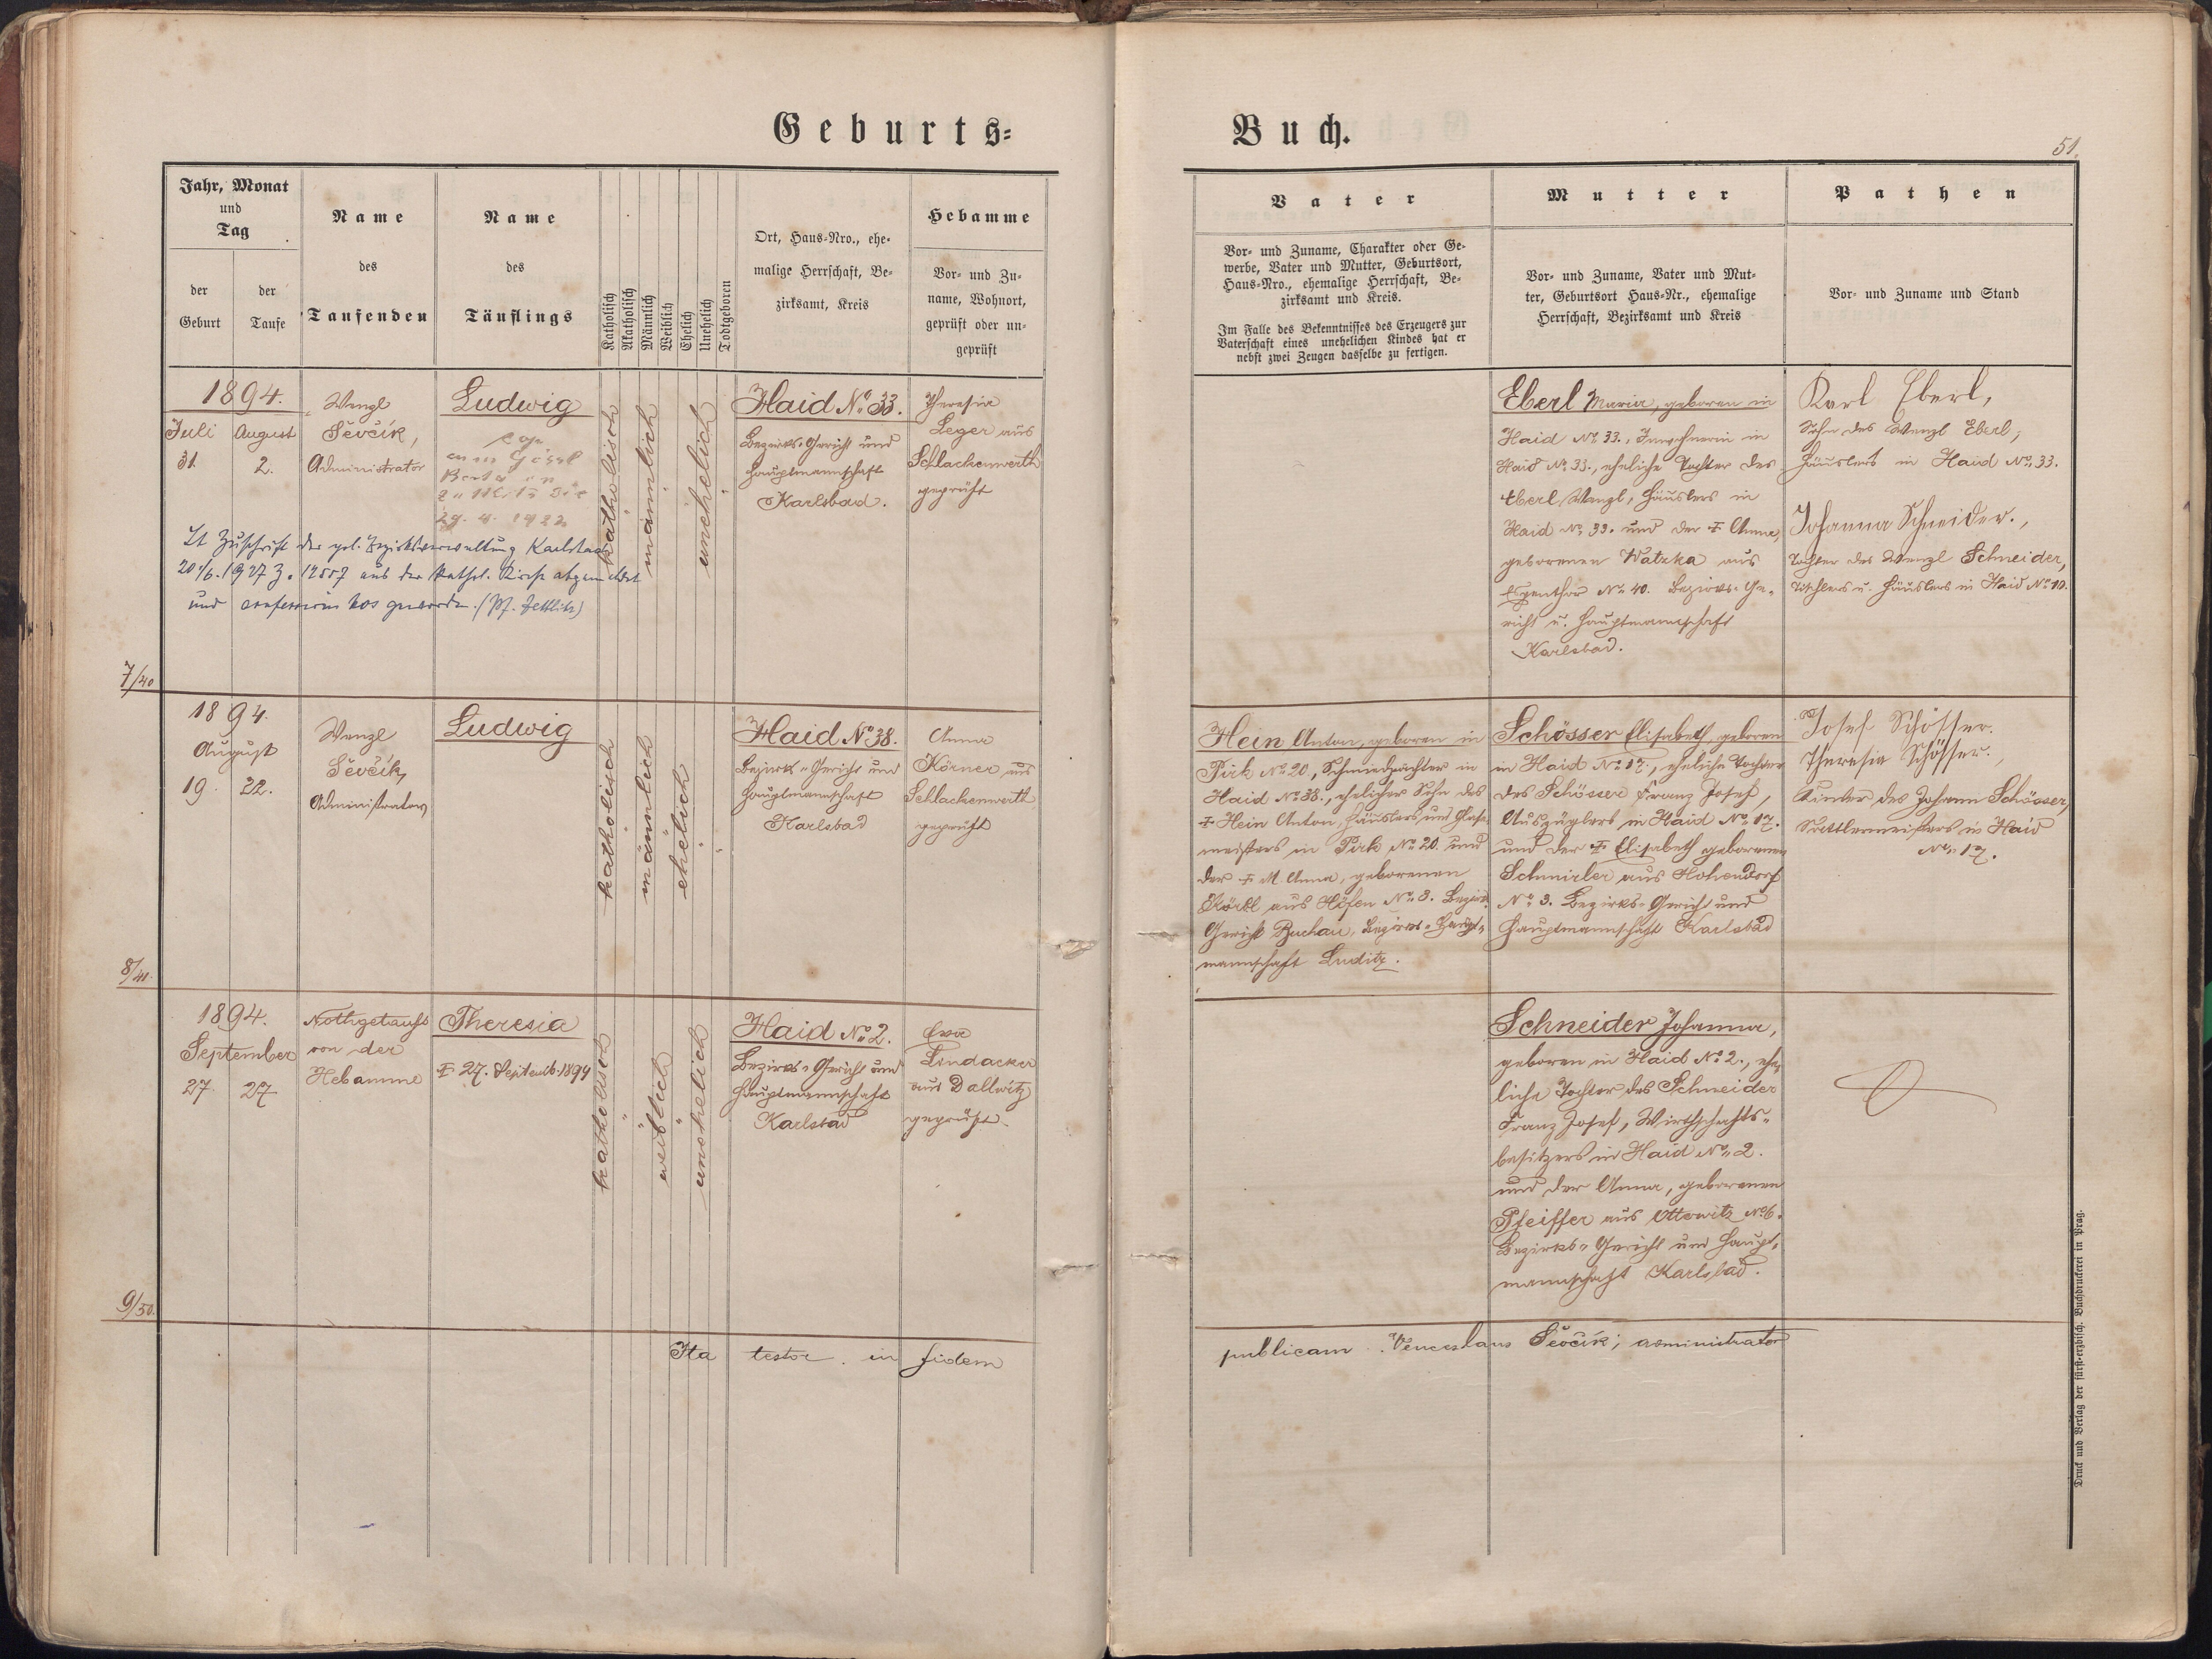 Geburts=
Buch.
51.
Jahr, Monat
und
Tag
der
Geburt
der
Taufe
Name
des
Taufenden
Name
des
Täuflings
Katholisch
Akatholisch
Männlich
Weiblich
Ehelich
Unehelich
Todtgeboren
Ort, Haus-Nro., ehe-
malige Herrschaft, Be-
zirksamt, Kreis
Hebamme
Vor- und Zu-
name, Wohnort,
geprüft oder un-
geprüft
Vater
Vor- und Zuname, Charakter oder Ge-
werbe, Vater und Mutter, Geburtsort,
Haus-Nro., ehemalige Herrschaft, Be-
zirksamt und Kreis.
Im Falle des Bekenntnisses des Erzeugers zur
Vaterschaft eines unehelichen Kindes hat er
nebst zwei Zeugen dasselbe zu fertigen.
Mutter
Vor- und Zuname, Vater und Mut-
ter, Geburtsort Haus-Nr., ehemalige
Herrschaft, Bezirksamt und Kreis
Pathen
Vor- und Zuname und Stand
1894.
Juli
31.
August
2.
Wenzl
Ševčík,
Administrator
Ludwig
Berta
29. 4. 1922
Lt Zuschrift der pol. Bezirksverwaltung Karlsbad
20/6. 1927 Z. 12507 aus der kathol. Kirche abgemeldet
und confessionslos geworden. (Pf. Zettlitz)
katholisch
männlich
unehelich
Haid No. 33.
Bezirks-Gericht und
Hauptmannschaft
Karlsbad.
Theresia
Leger aus
Schlackenwerth
geprüft
Eberl Maria, geboren in
Haid No. 33., Inwohnerin in
Haid No. 33., eheliche Tochter des
Eberl Wenzl, Häuslers in
Haid No. 33. und der † Anna,
geborenen Watzka aus
Espenthor No. 40. Bezirks-Ge-
richt u. Hauptmannschaft
Karlsbad.
Karl Eberl,
Sohn des Wenzl Eberl,
Häuslers in Haid No. 33.
Johanna Schneider.,
Tochter des Wenzl Schneider,
Tischlers u. Häuslers in Haid No. 10.
7/40
1894.
August
19.
22.
Wenzl
Ševčík,
Administrator
Ludwig
katholisch
männlich
ehelich
Haid No. 38.
Bezirks-Gericht und
Hauptmannschaft
Karlsbad
Anna
Körner aus
Schlackenwerth
geprüft
Hein Anton, geboren in
Pirk No. 20, Schmiedpächter in
Haid No. 38., ehelicher Sohn des
† Hein Anton, Häuslers und
meisters in Pirk No. 20. und
der † M. Anna, geborenen
aus Höfen No. 8. Bezirks
Gericht Buchau, Bezirks-Haupt-
mannschaft Luditz.
Schösser Elisabeth, geboren
in Haid No. 17., eheliche Tochter
des Schösser Franz Josef,
Auszüglers in Haid No. 17.
und der † Elisabeth geborenen
Schmirler aus Hohendorf
No. 3. Bezirks-Gericht und
Hauptmannschaft Karlsbad
Josef Schösser.
Theresia Schösser.,
Kinder des Johann Schösser,
Sattlermeisters in Haid
No. 17.
8/41.
1894.
September
27.
27
Nothgetauft
von der
Hebamme
Theresia
† 27. Septemb. 1894
katholisch
weiblich
unehelich
Haid No. 2.
Bezirks-Gericht und
Hauptmannschaft
Karlsbad
Eva
Lindacker
aus Dallwitz
geprüft.
Schneider Johanna,
geboren in Haid No. 2., ehe-
liche Tochter des Schneider
Franz Josef, Wirthschafts-
besitzers in Haid No. 2.
und der Anna, geborenen
Pfeiffer aus Ottowitz No. 6.
Bezirks-Gericht und Haupt-
mannschaft Karlsbad.
9/50.
Ita testor in fidem
publicam Venceslaus Ševčík; administrator
Druck und Verlag der fürst-erzbisch. Buchdruckerei in Prag.